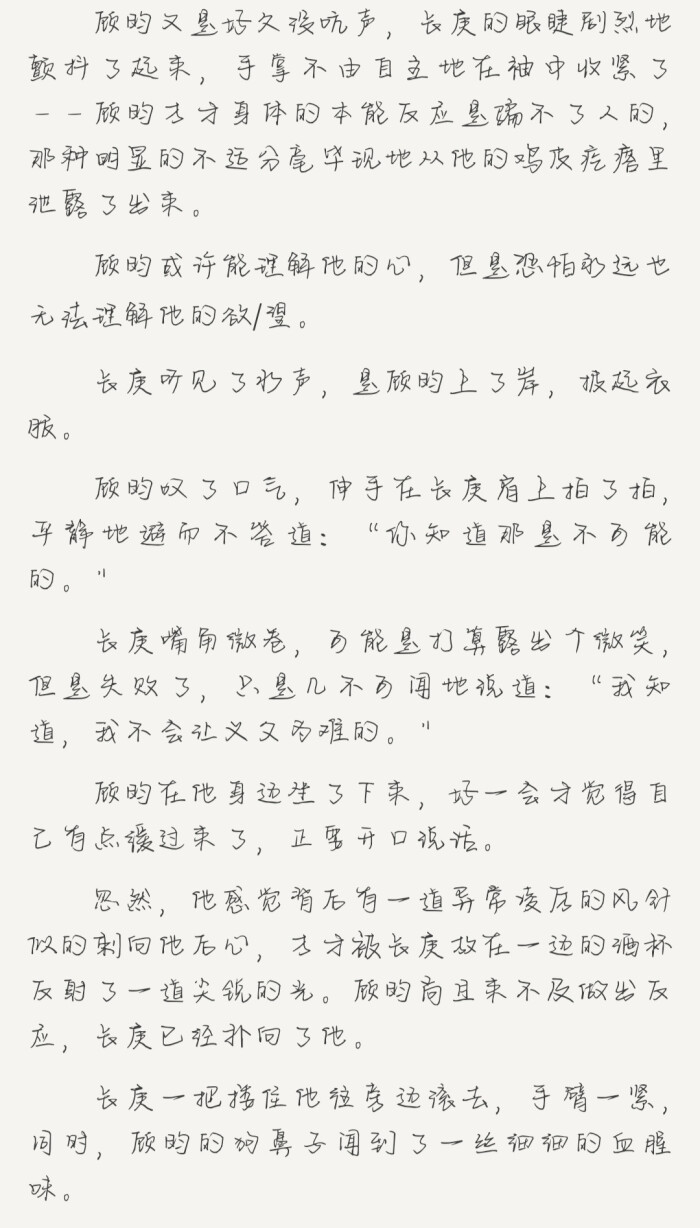 顾昀又是好久没吭声，长庚的眼睫剧烈地
颤抖了起来，手掌不由自主地在袖中收紧了
——顾昀方才身体的本能反应是骗不了人的，
那种明显的不适分毫毕现地从他的鸡皮疙瘩里
泄露了出来。
顾昀或许能理解他的心，但是恐怕永远也
无法理解他的欲/望。
长庚听见了水声，是顾昀上了岸，披起衣
服。
顾昀叹了口气，伸手在长庚肩上拍了拍，
平静地避而不答道：“你知道那是不可能
的。”
长庚嘴角微卷，可能是打算露出个微笑，
但是失败了，只是几不可闻地说道：“我知
道，我不会让义父为难的。”
顾昀在他身边坐了下来，好一会才觉得自
己有点缓过来了，正要开口说话。
忽然，他感觉背后有一道异常凌厉的风针
似的刺向他后心，方才被长庚放在一边的酒杯
反射了一道尖锐的光。顾昀尚且来不及做出反
应，长庚已经扑向了他。
长庚一把搂住他往旁边滚去，手臂一紧，
同时，顾昀的狗鼻子闻到了一丝细细的血腥
味。